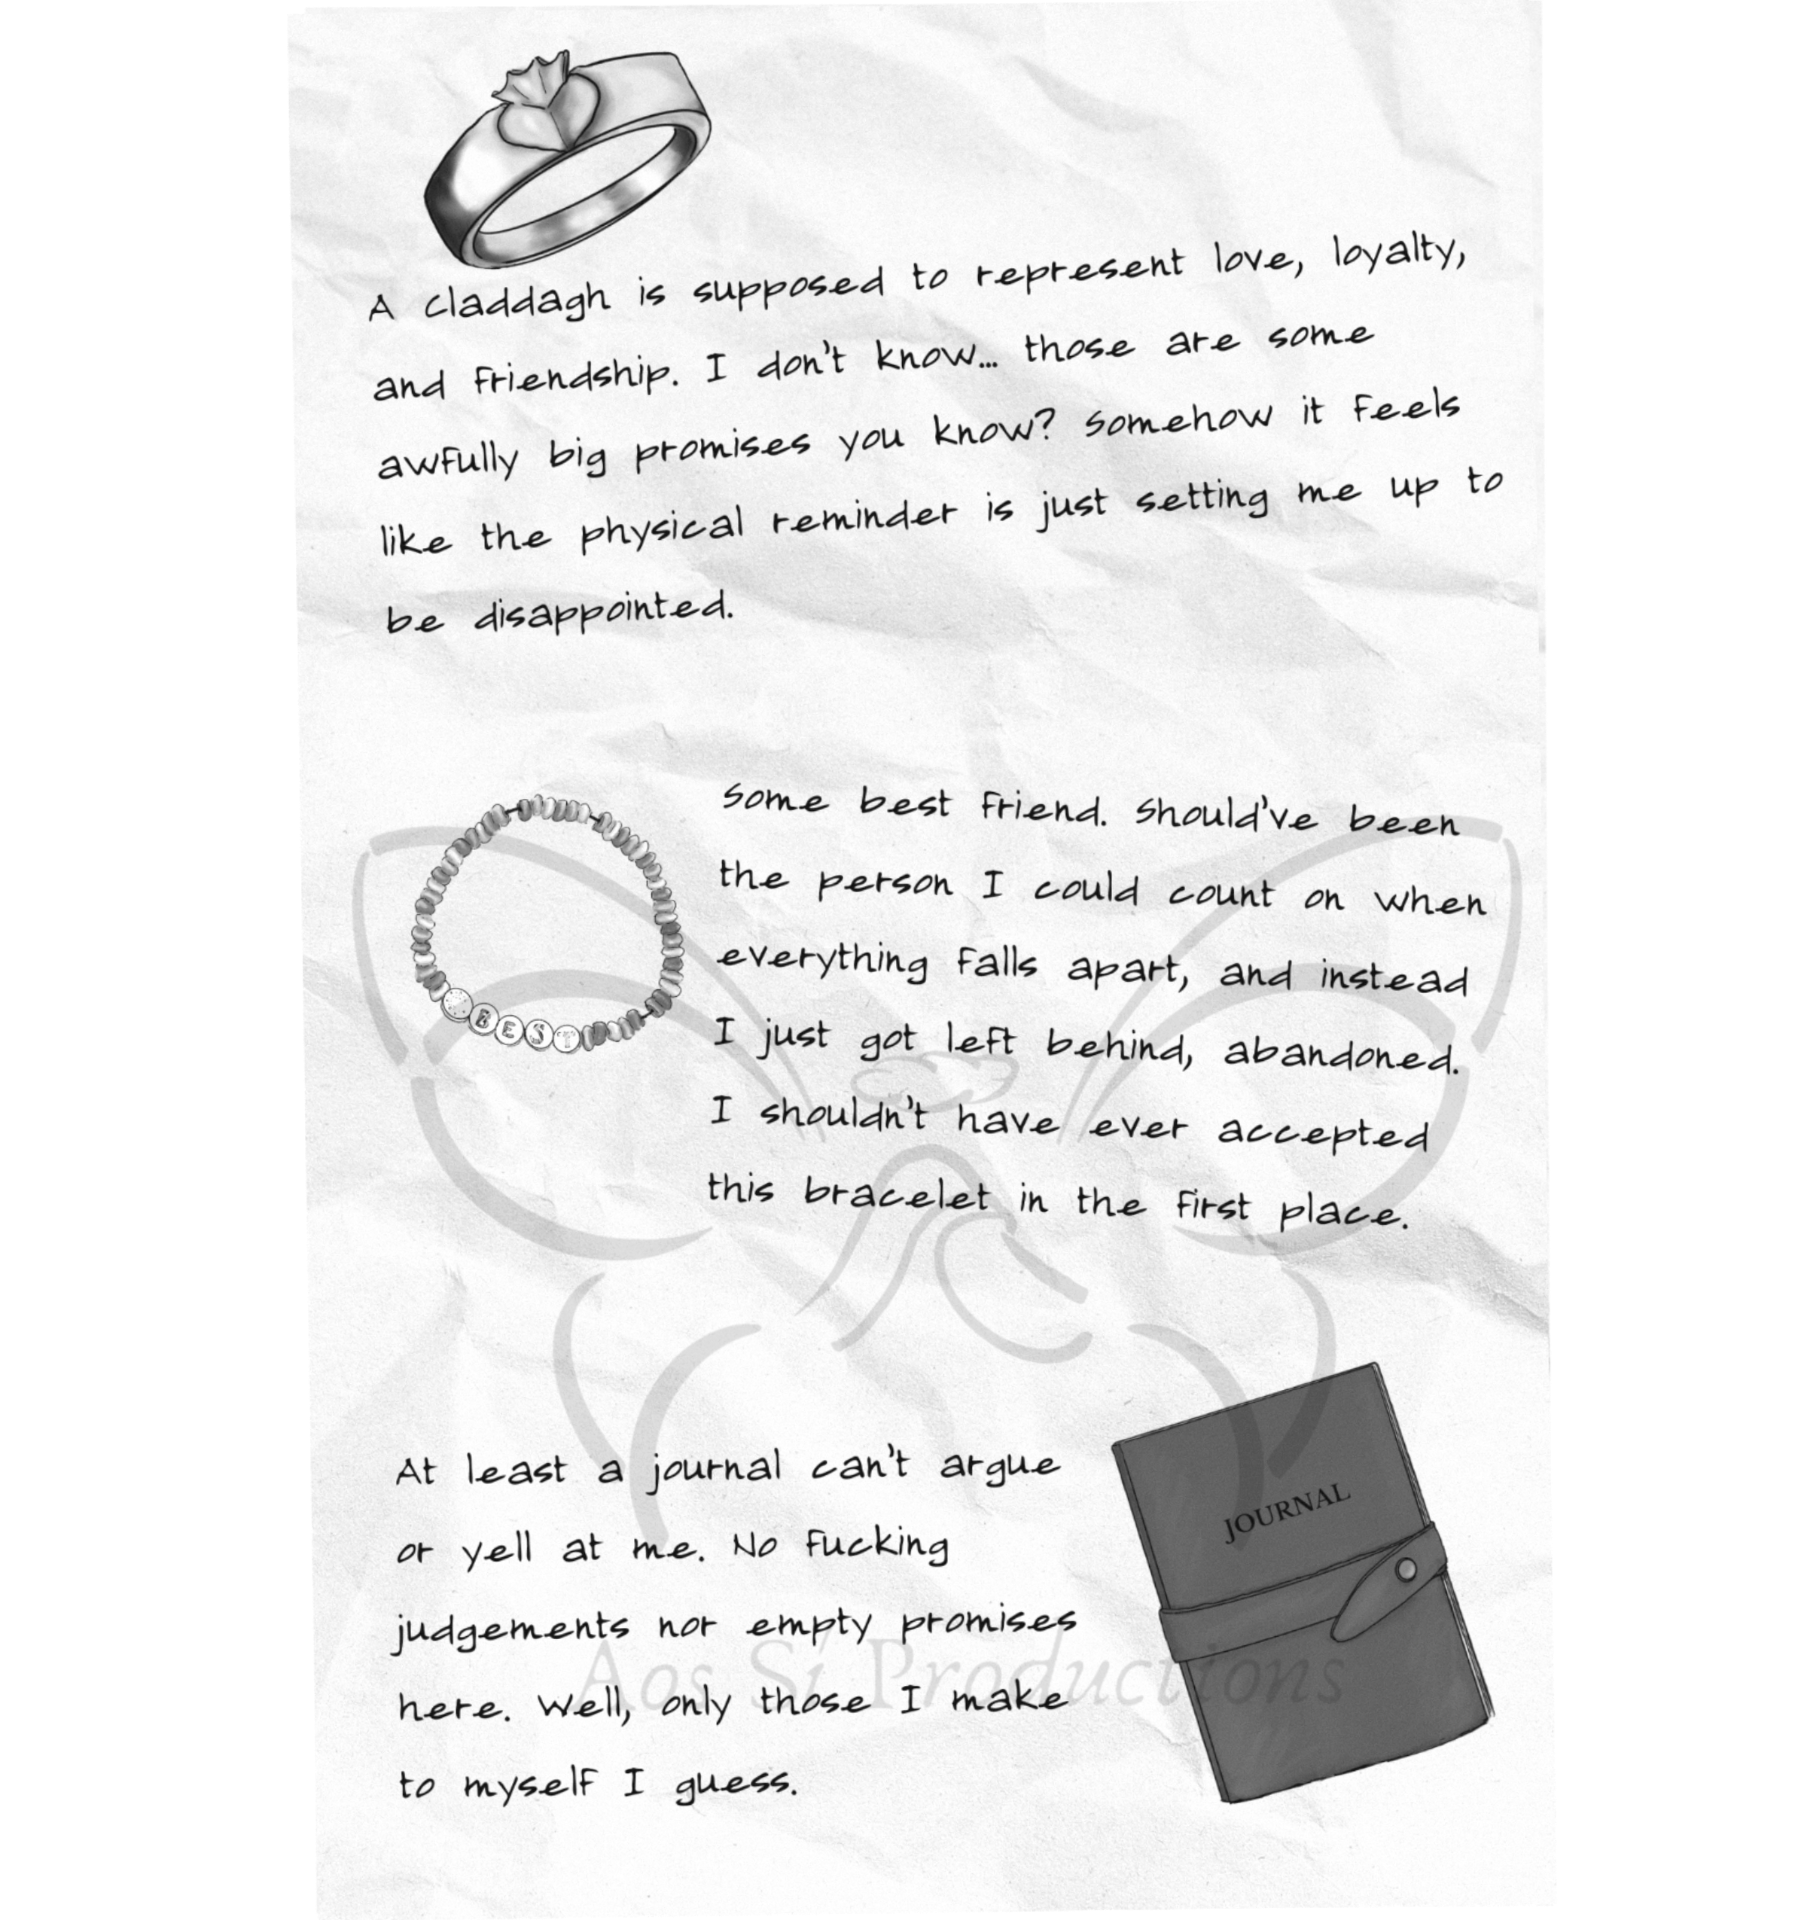 A claddagh is supposed to represent love, loyalty,
and friendship. I don't know... those are some
awfully big promises you know? Somehow it feels
like the physical reminder is just setting me up to
be disappointed.
Some best friend. Should've been
the person I could count on when
everything falls apart, and instead
I just got left behind, abandoned.
I shouldn't have ever accepted
this bracelet in the first place.
BEST
At least a journal can't argue
or yell at me. No fucking
judgements nor empty promises
here. Well, only those I make
to myself I guess.
JOURNAL
Aos Sí Productions